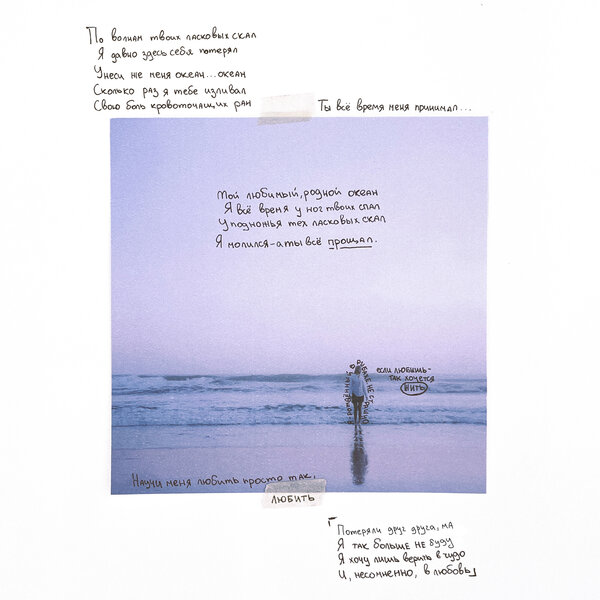 По волнам твоих ласковых скал
Я давно здесь себя потерял
Унеси же меня океан...океан
Сколько раз я тебе изливал
Свою боль кровоточащих ран
Ты всё время меня принимал...
Мой любимый, родной океан
Я всё время у ног твоих спал
У подножья тех ласковых скал
Я молился-а ты всё прощал.
если любишь-
так хочется
жить
Научи меня любить просто так,
любить
Потеряли друг друга, ма
Я так больше не буду
Я хочу лишь верить в чудо
И, несомненно, в любовь